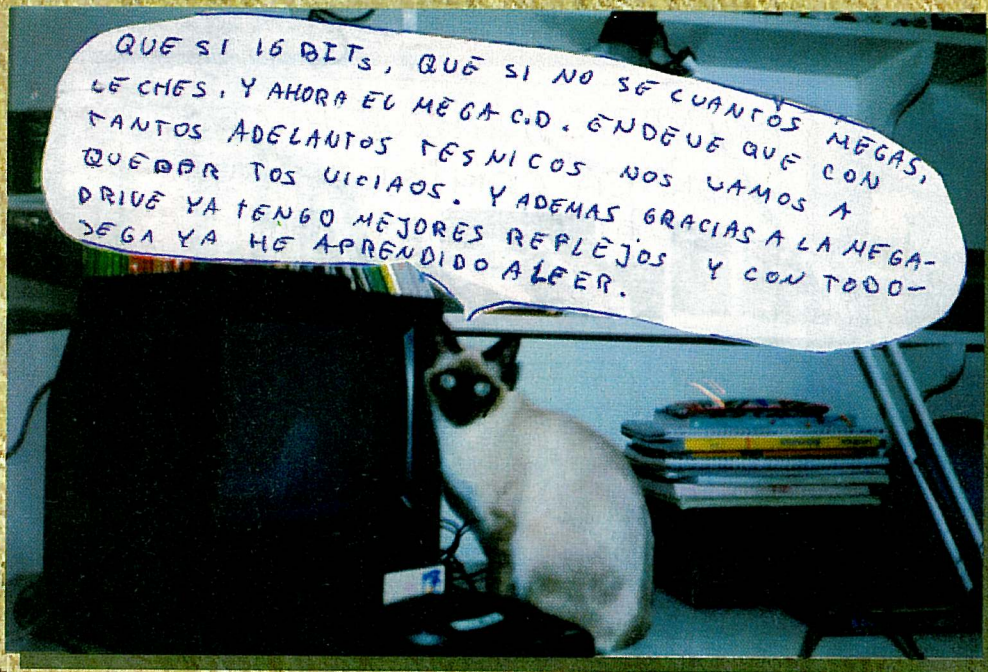 QUE SI 16 BITs, QUE SI NO SE CUANTOS MEGAS,
LECHES. Y AHORA EL MEGA C.D. ENDEVE QUE CON
TANTOS ADELANTOS TESNICOS NOS VAMOS A
QUEDAR TOS VICIAOS. Y ADEMAS GRACIAS A LA MEGA-
DRIVE YA TENGO MEJORES REFLEJOS Y CON TODO-
SEGA YA HE APRENDIDO A LEER.